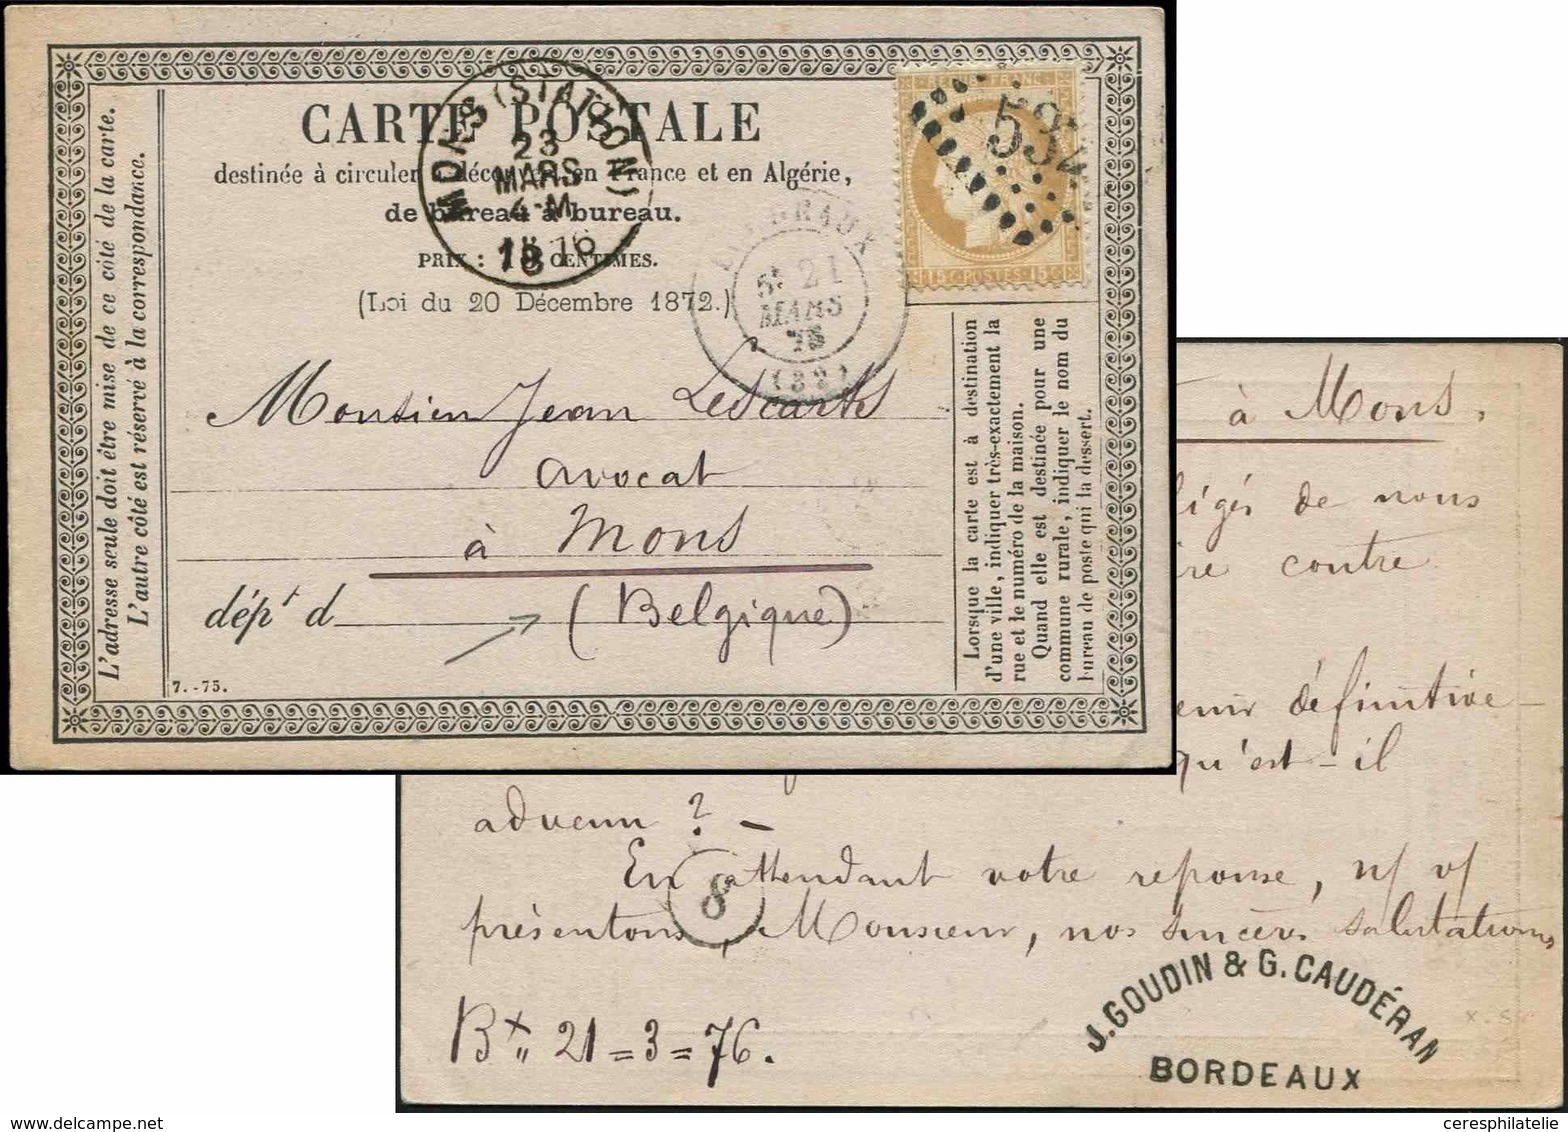 CARTE POSTALE
destinée à circuler à découvert en France et en Algérie,
de bureau à bureau.
PRIX : 15 CENTIMES.
(Loi du 20 Décembre 1872.)
MONS (STATION)
23
MARS
4-M
1876
BORDEAUX
5E 21
MARS
76
(32)
534
REPUB. FRANC.
15 C POSTES 15 C
L'adresse seule doit être mise de ce côté de la carte.
L'autre côté est réservé à la correspondance.
Monsieur Jean Lescarts
avocat
à Mons
dépt d
(Belgique)
7.-75.
Lorsque la carte est à destination
d'une ville, indiquer très-exactement la
rue et le numéro de la maison.
Quand elle est destinée pour une
commune rurale, indiquer le nom du
bureau de poste qui la dessert.
à Mons.
de nous
contre
définitive-
qu'est-il
advenu ? -
En attendant votre réponse, n/ v/
8
présentons, Monsieur, nos sincères salutations
Bx 21=3=76.
J. GOUDIN & G. CAUDÉRAN
BORDEAUX
ceresphilatelie